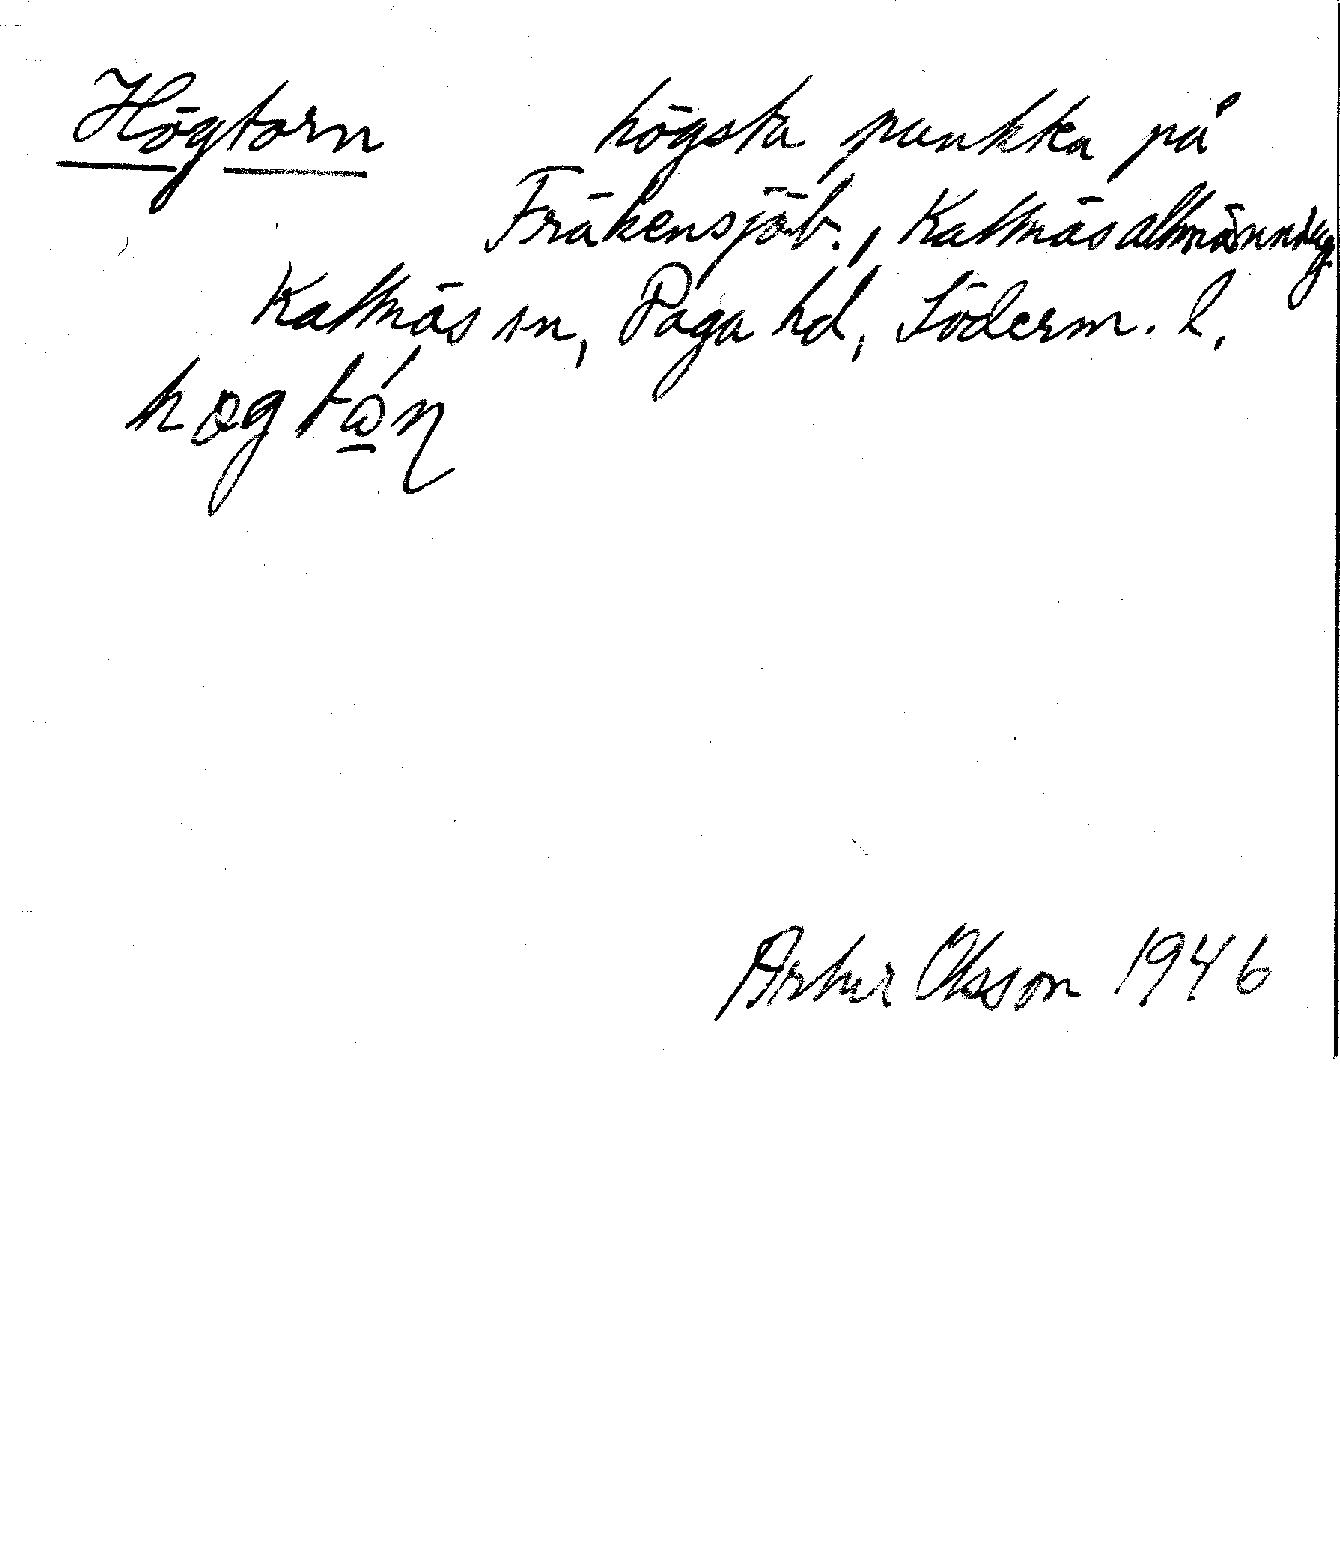 Högtorn högsta punkten på
Fräkensjöb., Kattnäs allmänning
Kattnäs sn, Daga hd, Söderm. l.
Artur Olsson 1946